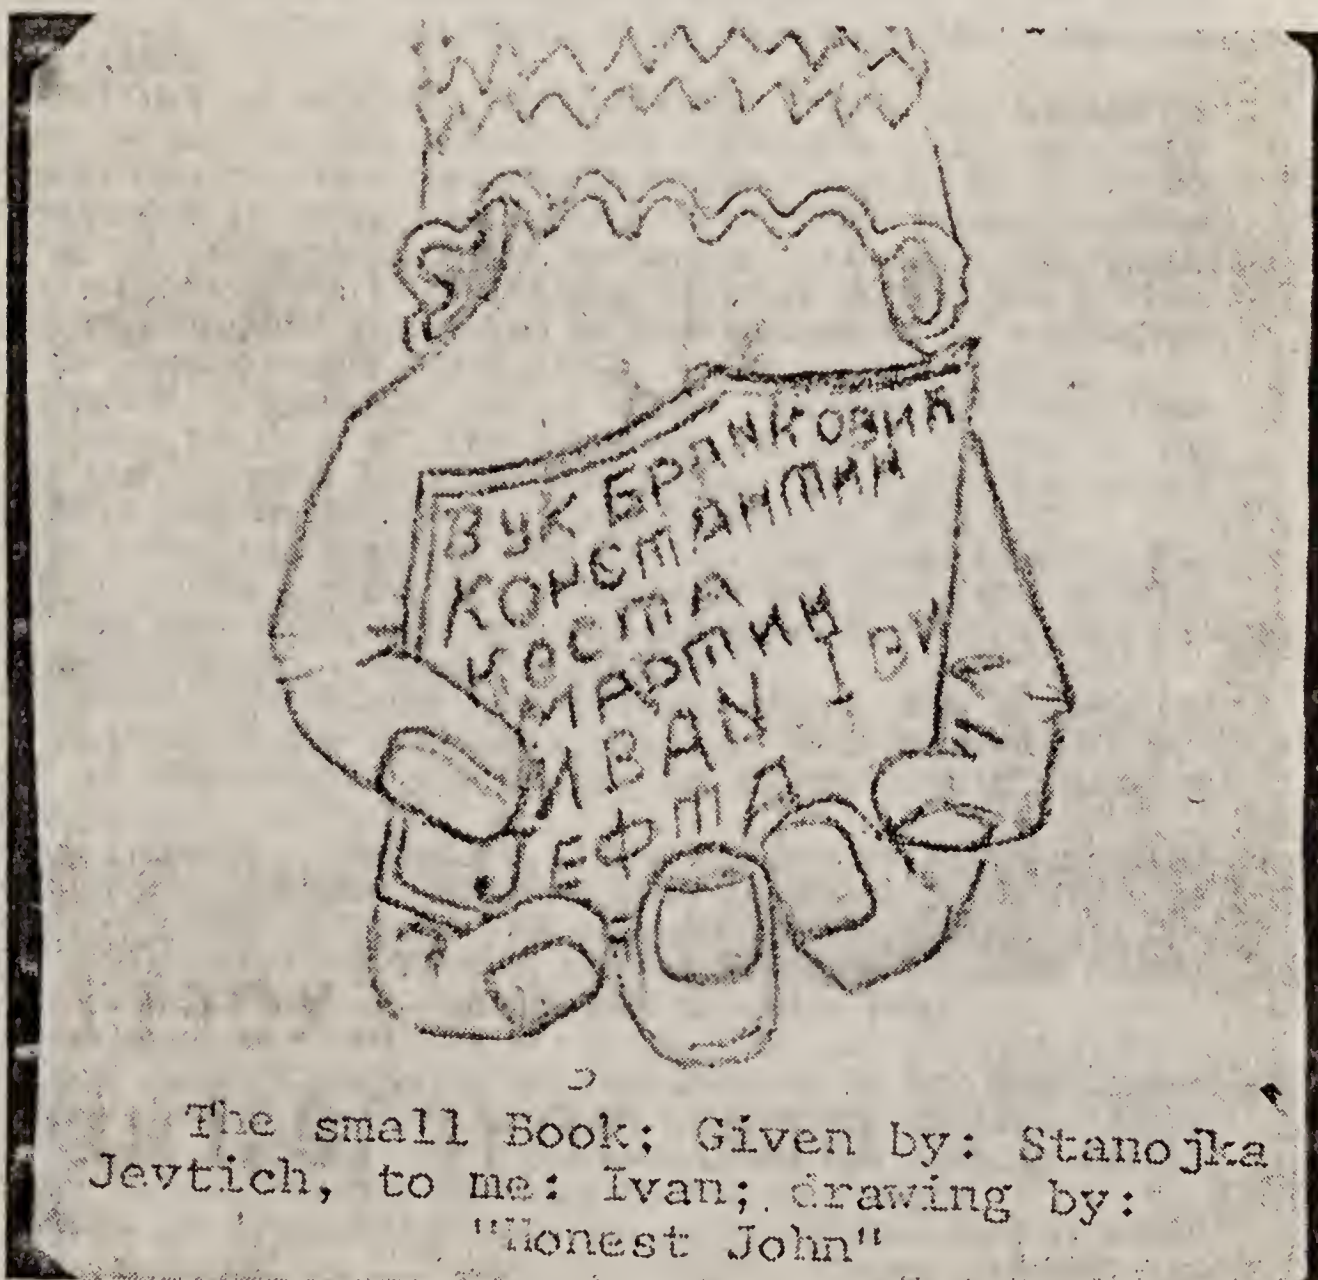 ВУК БРАNКОВИЋ
КОНСТАНТИН
КОСТА
МАРТИН
ИВАN I ВУ
ЕФТА
The small Book; Given by: Stanojka
Jevtich, to me: Ivan; drawing by:
"Honest John"